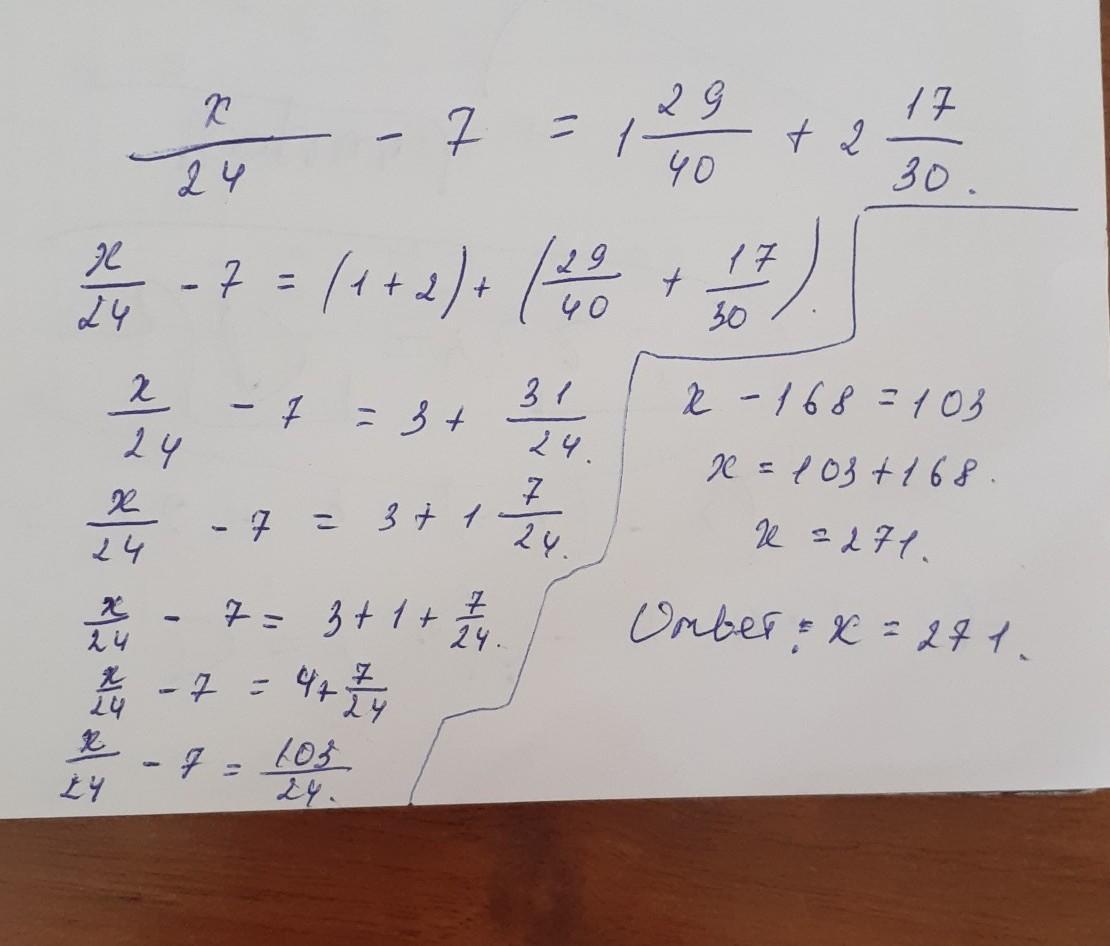 x/24 - 7 = 1 29/40 + 2 17/30.
x/24 - 7 = (1 + 2) + (29/40 + 17/30).
x/24 - 7 = 3 + 31/24.
x/24 - 7 = 3 + 1 7/24.
x/24 - 7 = 3 + 1 + 7/24.
x/24 - 7 = 4 + 7/24
x/24 - 7 = 103/24.
x - 168 = 103
x = 103 + 168.
x = 271.
Ответ: x = 271.